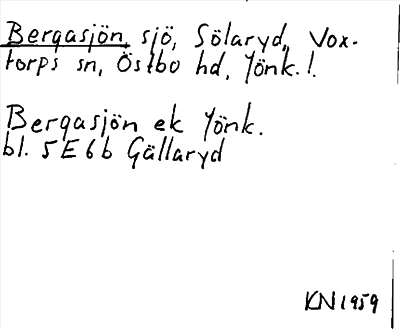 Bergasjön sjö, Sölaryd, Vox-
torps sn, Östbo hd, Jönk. l.
Bergasjön ek Jönk.
bl. 5E6b Gällaryd
KN 1959